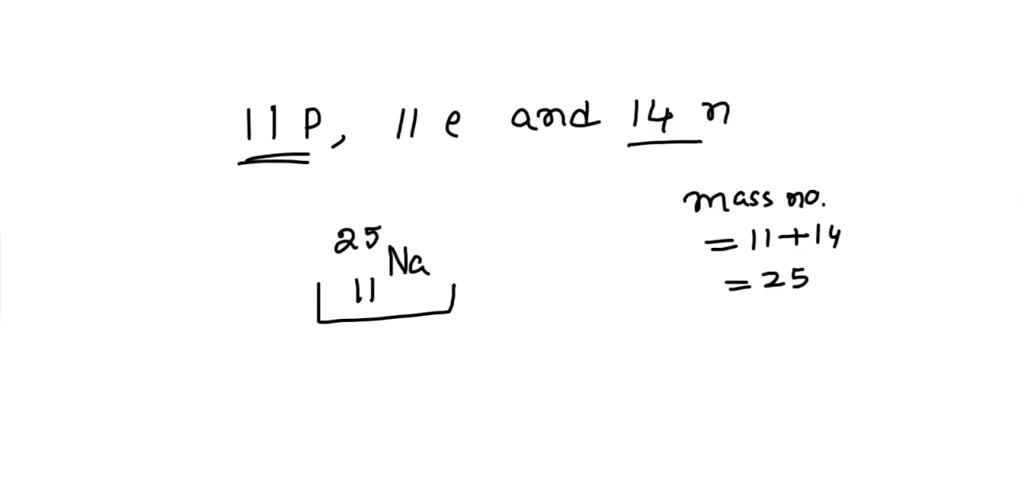 11 P, 11 e and 14 n
mass no.
= 11 + 14
= 25
25
Na
11